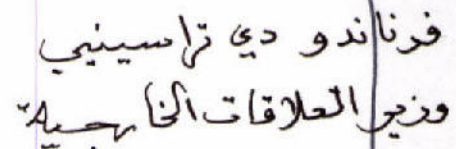 فرناندو دي تراسينيي
وزير العلاقات الخارجية